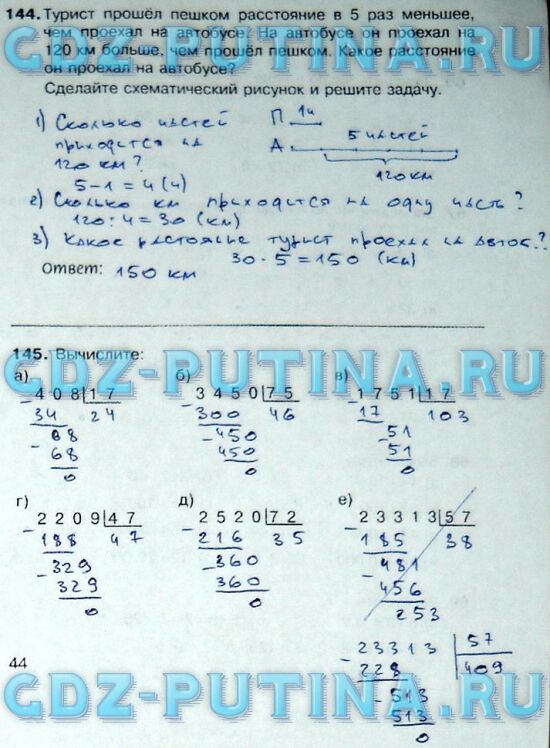 144. Турист прошёл пешком расстояние в 5 раз меньшее,
чем проехал на автобусе. На автобусе он проехал на
120 км больше, чем прошёл пешком. Какое расстояние
он проехал на автобусе?
Сделайте схематический рисунок и решите задачу.
1) Сколько частей
приходится на
120 км?
5-1=4(ч)
П. 1ч
А. 5 частей
120 км
2) Сколько км приходится на одну часть?
120:4=30 (км)
3) Какое растояние турист проехал на автоб.?
30·5=150 (км)
Ответ: 150 км
145. Вычислите:
а) б) в)
408 17 3450 75 1751 17
34 24 300 46 17 103
68 450 51
68 450 51
0 0 0
г) д) е)
2209 47 2520 72 23313 57
188 47 216 35 185 38
329 360 481
329 360 456
0 0 253
23313 57
228 409
513
513
0
44
GDZ-PUTINA.RU
GDZ-PUTINA.RU
GDZ-PUTINA.RU
GDZ-PUTINA.RU
GDZ-PUTINA.RU